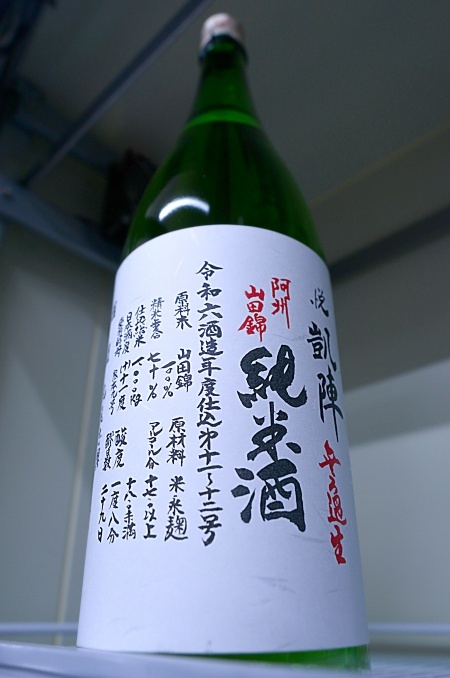 悦 凱陣 無ろ過生
阿州
山田錦
純米酒
令和六酒造年度仕込第十一~十二号
原料米 山田錦 一〇〇% 原材料 米 米麹
精米歩合 七十% アルコール分 十七・〇以上
仕込総米 一〇〇〇kg 十八・〇未満
日本酒度 酸度 一度八分
二十九日